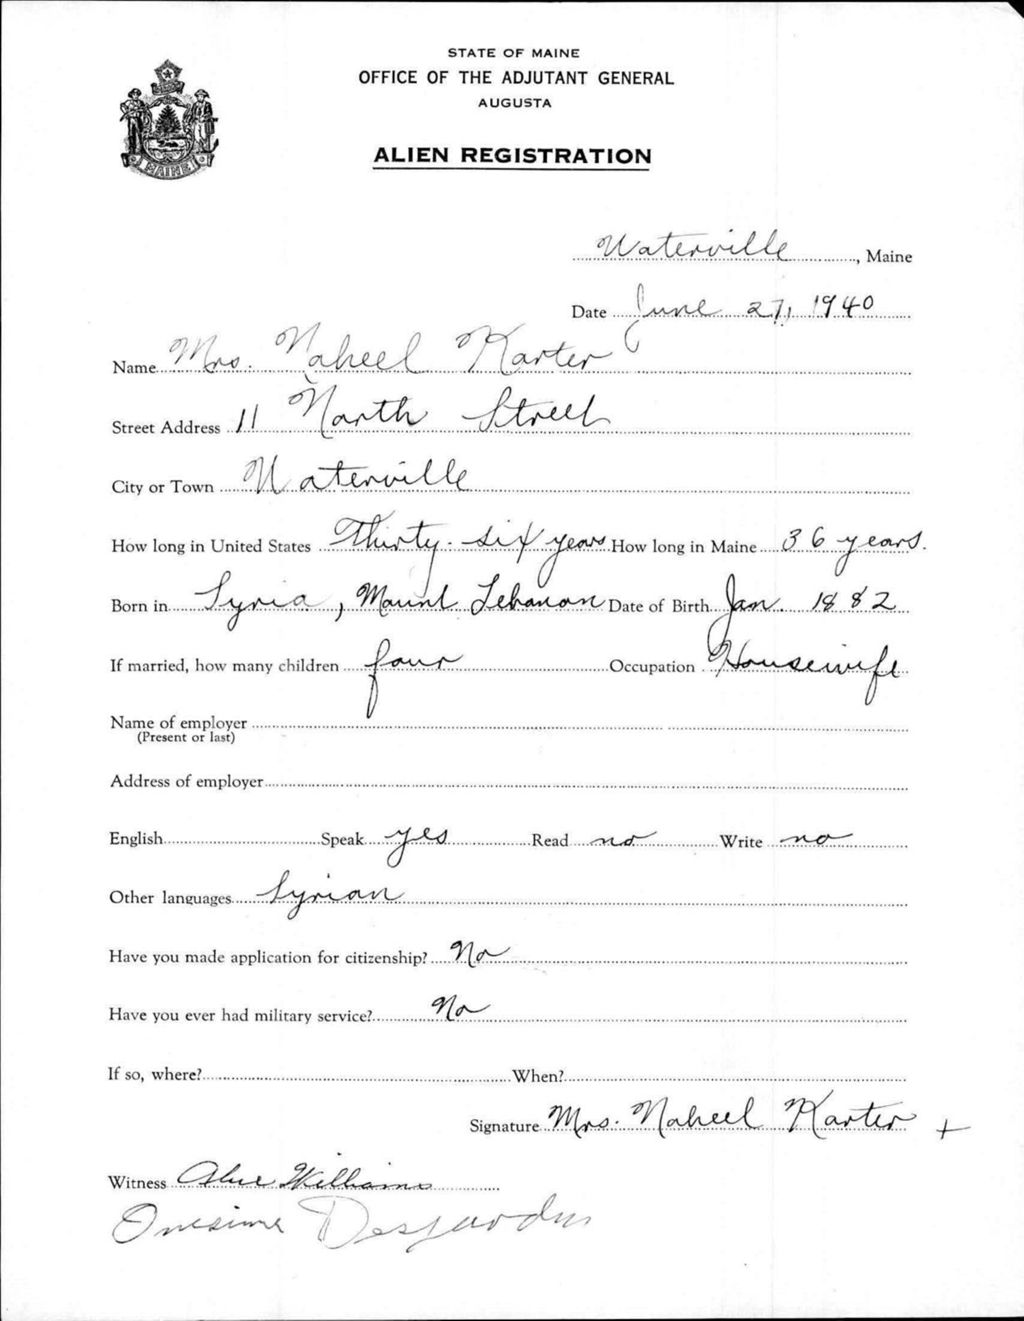 STATE OF MAINE
OFFICE OF THE ADJUTANT GENERAL
AUGUSTA
ALIEN REGISTRATION
MAINE
Waterville, Maine
Date June 27, 1940
Name Mrs. Naheel Karter
Street Address 11 North Street
City or Town Waterville
How long in United States Thirty-six years How long in Maine 36 years.
Born in Syria, Mount Lebanon Date of Birth Jan. 1882
If married, how many children four Occupation Housewife
Name of employer
(Present or last)
Address of employer
English Speak yes Read no Write no
Other languages Syrian
Have you made application for citizenship? No
Have you ever had military service? No
If so, where? When?
Signature Mrs. Naheel Karter +
Witness Williams
Onesime Desjardins